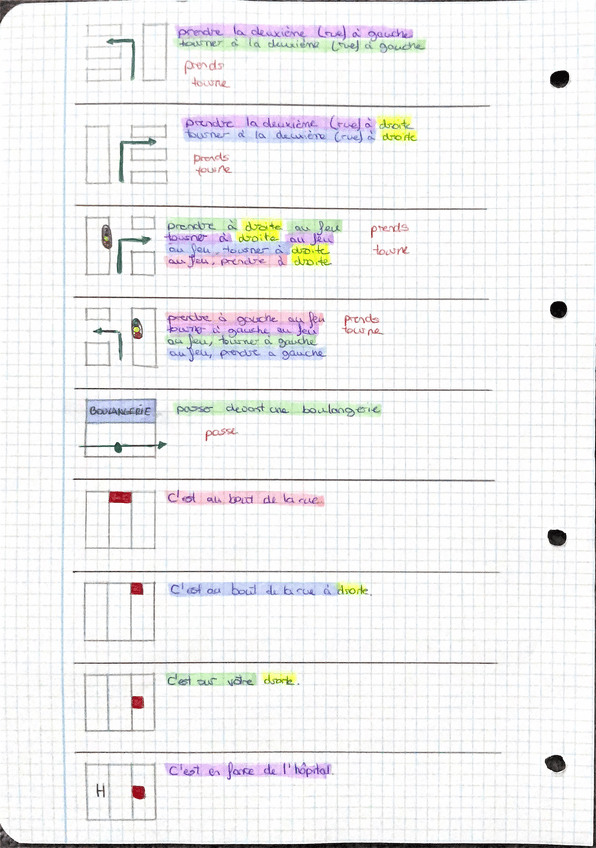 prendre la deuxième (rue) à gauche
tourner à la deuxième (rue) à gauche
prends
tourne
prendre la deuxième (rue) à droite
tourner à la deuxième (rue) à droite
prends
tourne
prendre à droite au feu prends
tourner à droite au feu
au feu, tourner à droite tourne
au feu, prendre à droite
prendre à gauche au feu prends
tourner à gauche au feu tourne
au feu, tourner à gauche
au feu, prendre à gauche
BOULANGERIE passer devant une boulangerie
passe
C'est au bout de la rue
C'est au bout de la rue à droite.
C'est sur vôtre droite.
C'est en face de l'hôpital.
H